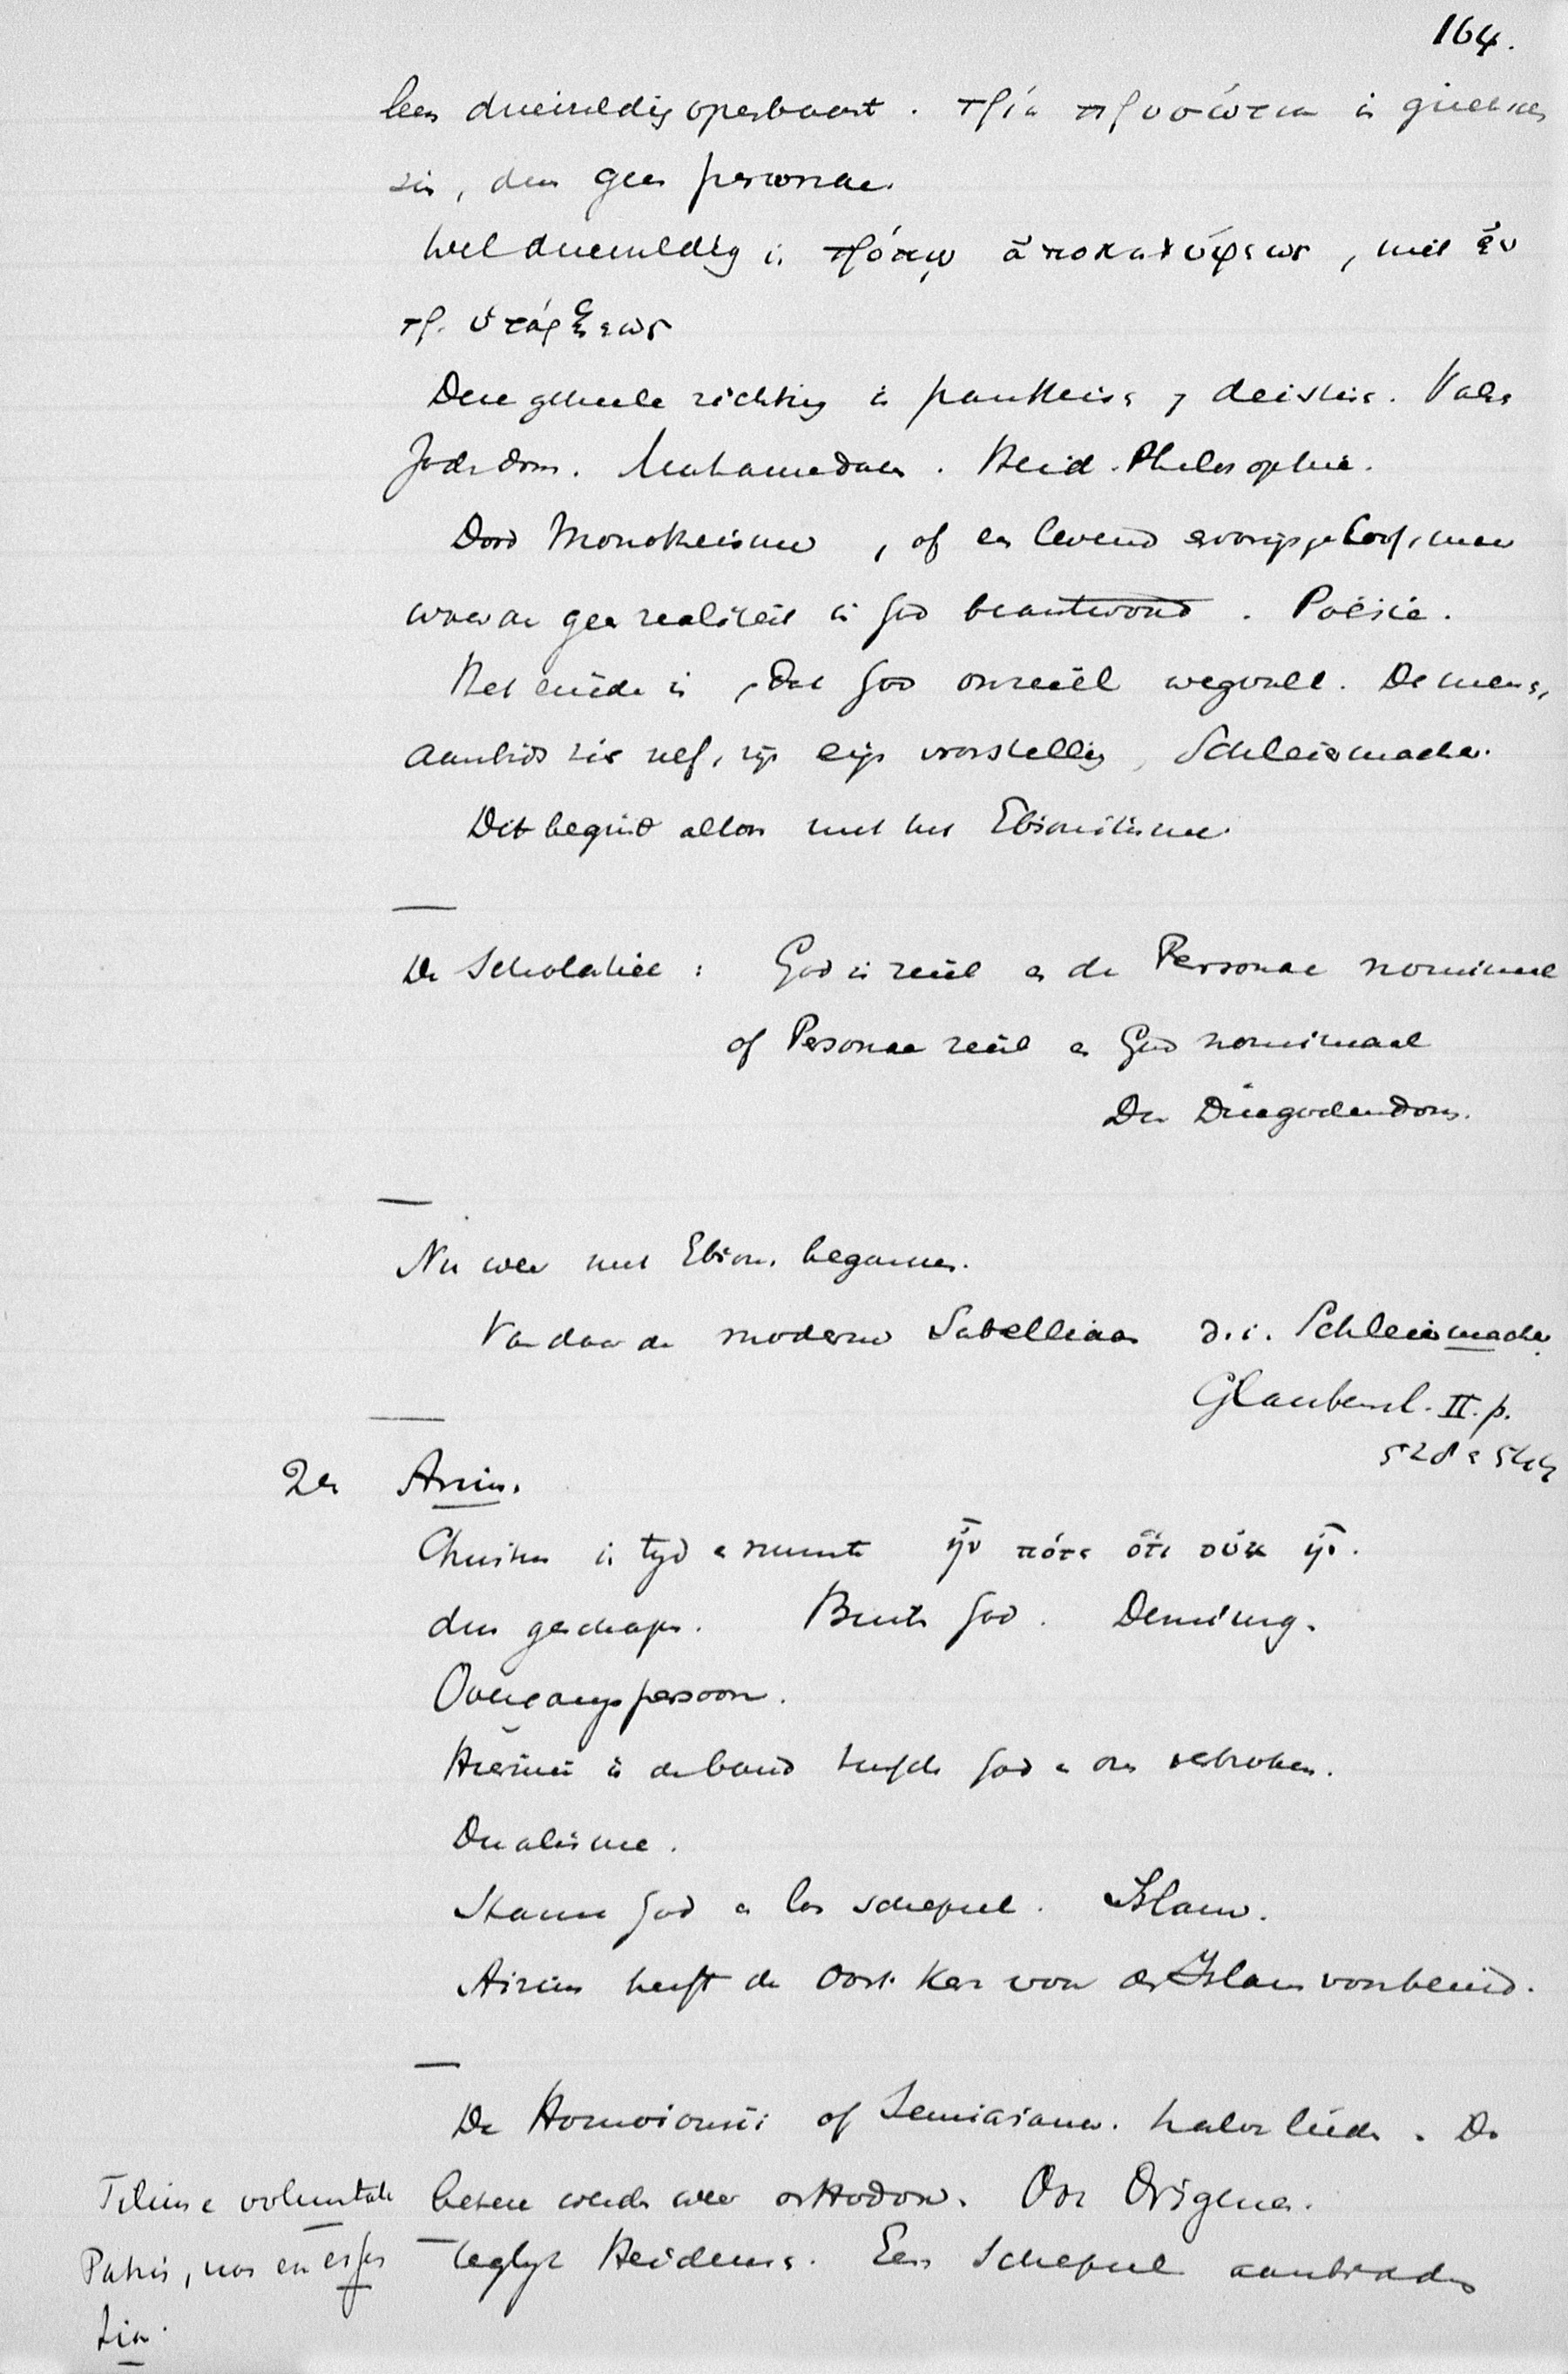 164.
leen drievuldig openbaart. τρία πρόσωπα in griekschen
zin, den geen personae.
Wel drievuldig in τρόπῳ ἀποκαλύψεως, niet ἐν
τρ. ὑπάρξεως
Deze geheele richting is pantheïs, deistis. Vals
Jodedom. Muhamedaan. Heid. Philosophie.
Dood Monotheisme, of en levend
waaraan geen realiteit in God beantwoord. Poësie.
Het einde is, dat God onreëel wegvalt. De mens,
aanbidt zich zelf, zijn eigen voorstelling, Schleiermacher.
Dit begint alles met het Ebionitisme.
De Scholastiek: God is reëel en de Personae nominaal
of Personae reëel en God nominaal
Den Driegodendom.
Nu weer met Ebion. begonnen.
Vandaar de moderne Sabelliaan d.i. Schleiermacher
Glaubensl. II. p.
528 & 544
2en Arius.
Christus in tijd en ruimte ἦν πότε ὅτε οὐκ ἦν.
dus geschapen. Buiten God. Demiurg.
Overgangspersoon.
Hiermee is de band tusschen God en ons verbroken.
Dualisme.
Starre God en los schepsel. Islam.
Arius heeft de Oost. Kerk voor den Islam voorbereid.
De Homoiousii of Semiarianen. halve lieden. De
betere werden weer orthodox. Ook Origenes.
Filius e voluntate
Patris, non en essen
tia.
Teglijk Heidens. Een Schepsel aanbidden